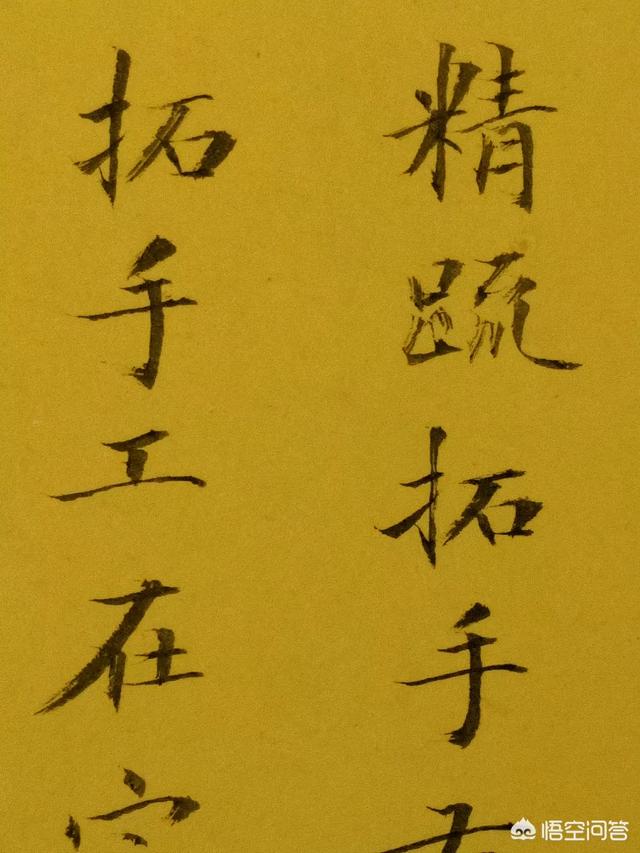 精䟽拓手
拓手工在
悟空问答